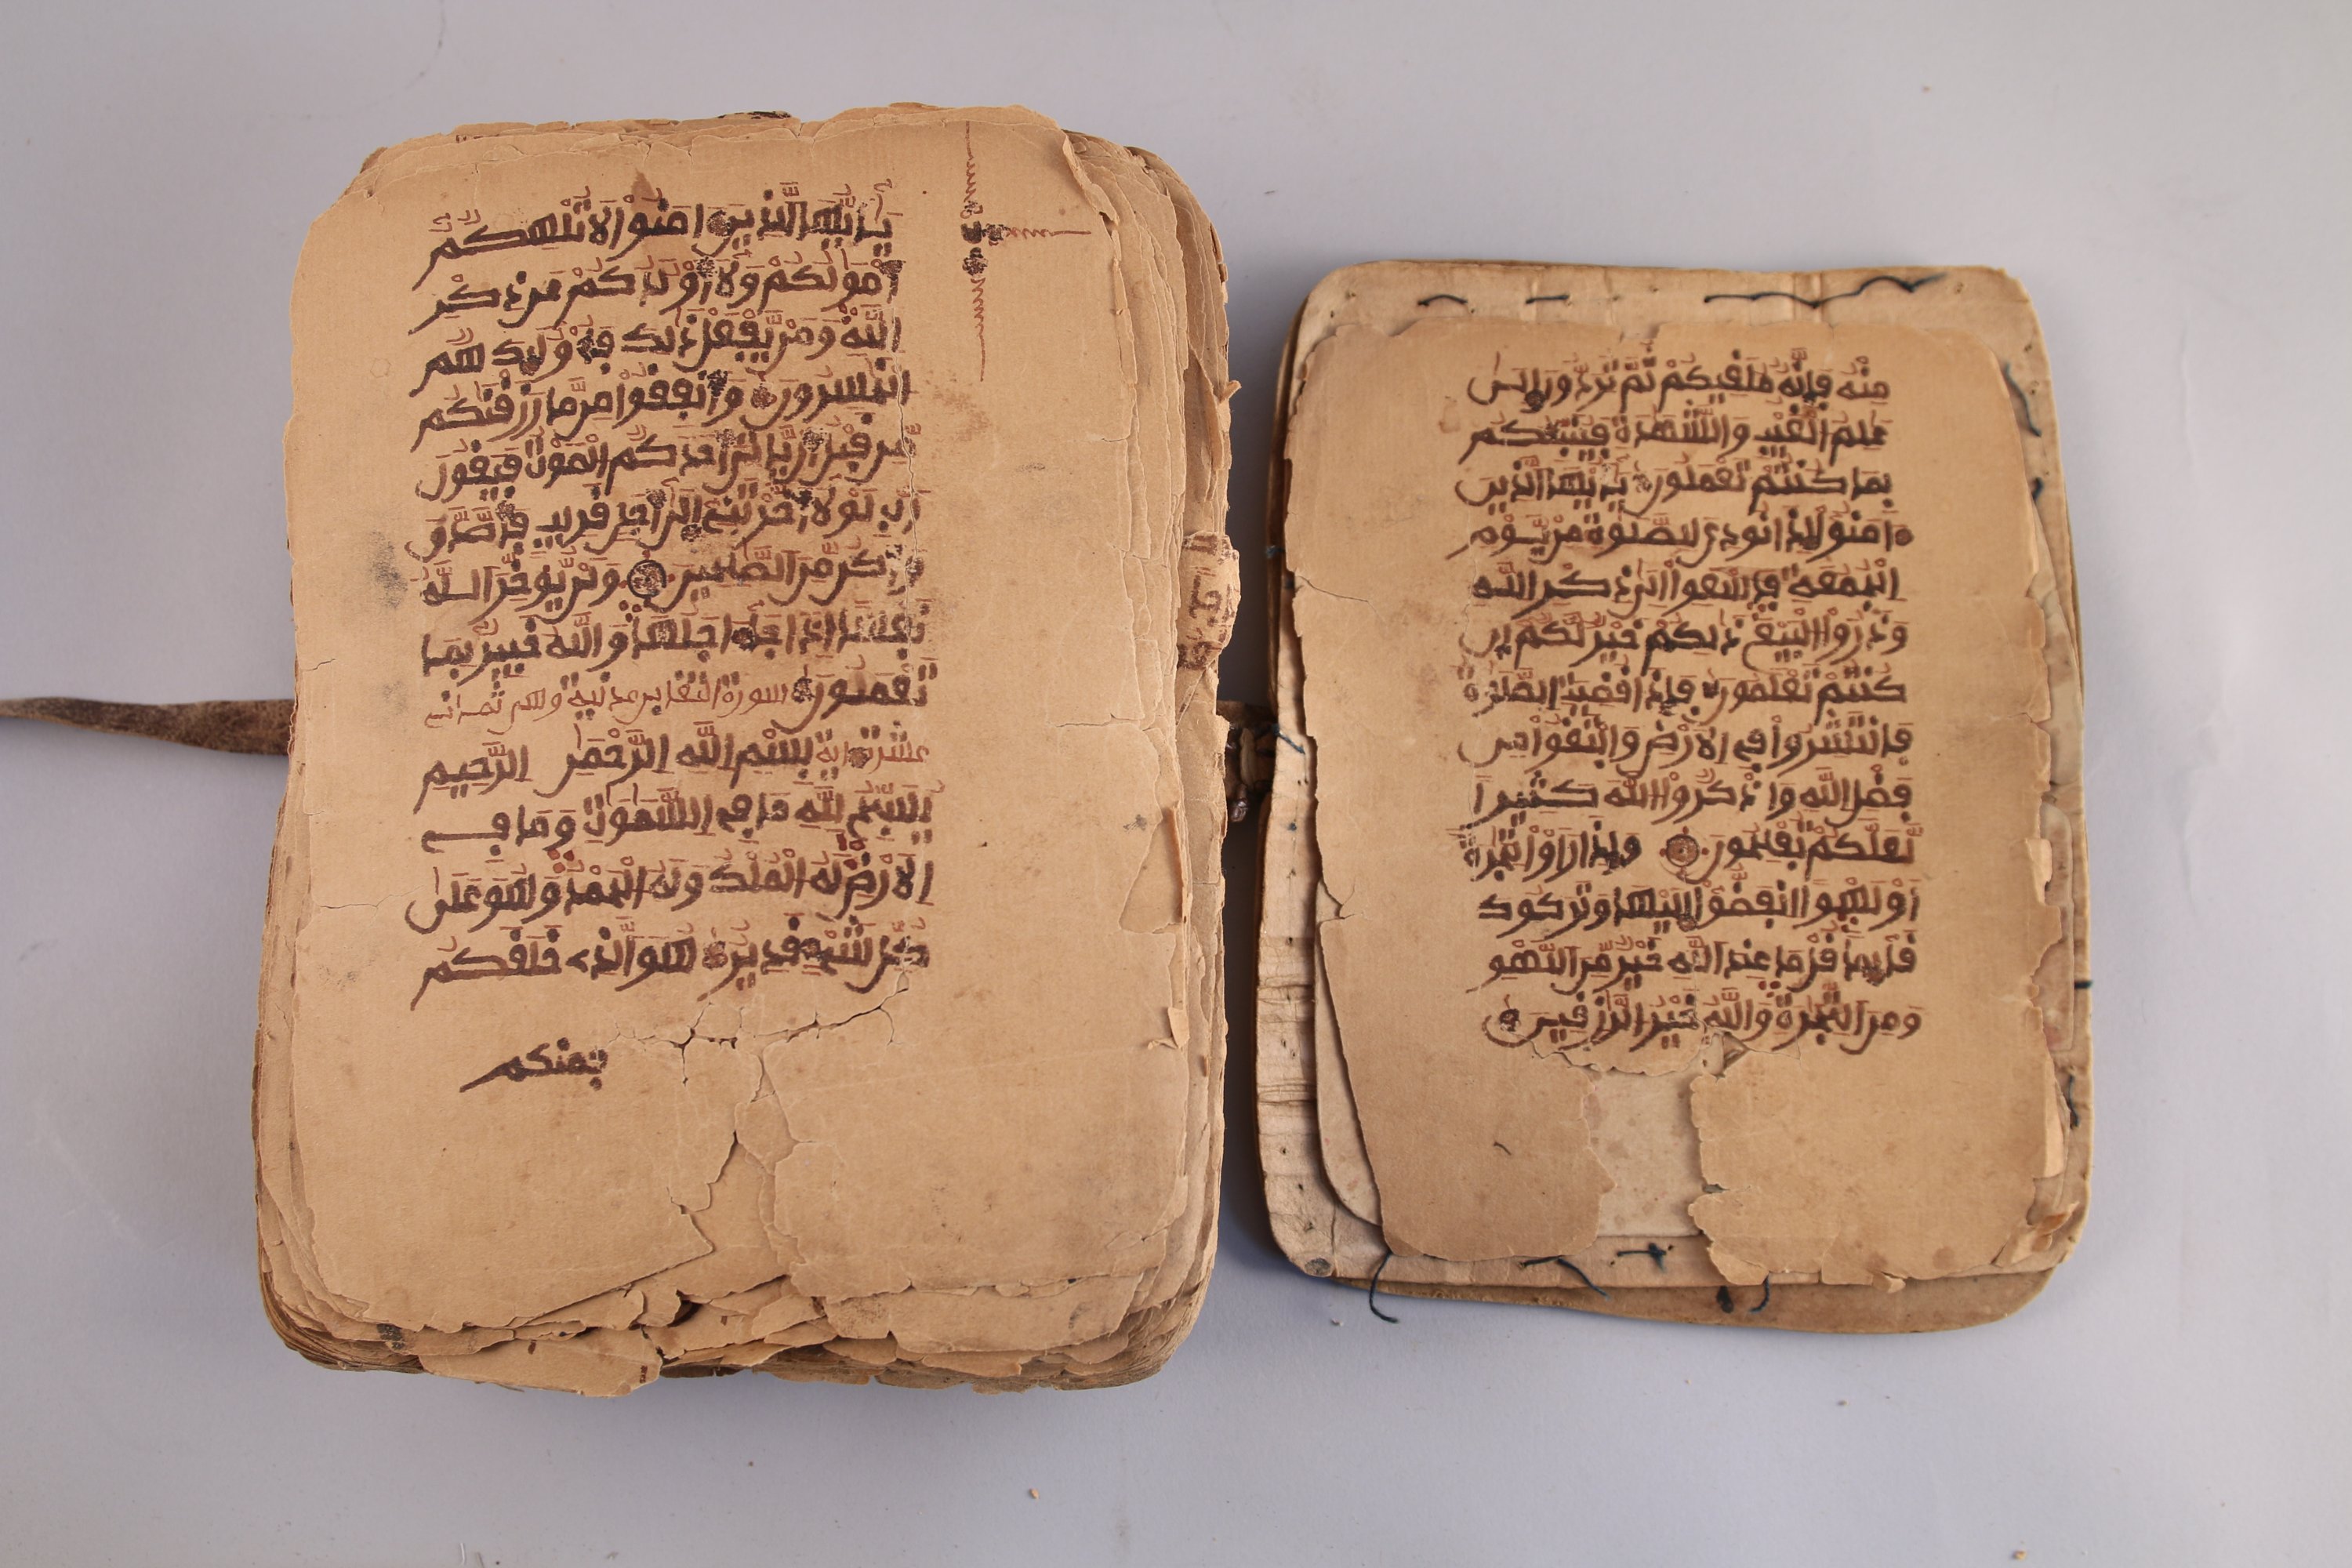 منه فإنه ملقيكم ثم تردون إلى
علم الغيب والشهدة فينبئكم
بما كنتم تعملون يأيها الذين
ءامنوا إذا نودي للصلوة من يوم
الجمعة فاسعوا إلى ذكر الله
وذروا البيع ذلكم خير لكم إن
كنتم تعلمون فإذا قضيت الصلوة
فانتشروا في الارض وابتغوا من
فضل الله واذكروا الله كثيرا
لعلكم تفلحون وإذا رأوا تجرة
أو لهوا انفضوا إليها وتركوك
قآيما قل ما عند الله خير من اللهو
ومن التجرة والله خير الرزقين
يأيها الذين ءامنوا لا تلهكم
أمولكم ولا أولدكم عن ذكر
الله ومن يفعل ذلك فأوليك هم
الخسرون وأنفقوا من ما رزقنكم
من قبل أن ياتي أحدكم الموت فيقول
رب لولا أخرتني إلى أجل قريب فأصدق و
أكن من الصلحين ولن يؤخر الله
نفسا إذا جاء اجلها والله خبير بما
تعملون سورة التغابن مدنية وهي ثماني
عشرة اية بسم الله الرحمن الرحيم
يسبح لله ما في السموت وما في
الارض له الملك وله الحمد وهو على
كل شيء قدير هو الذي خلقكم
بمنكم